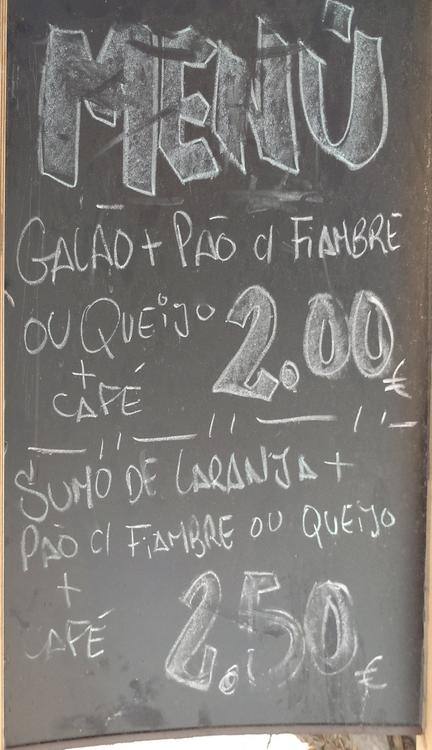 MENÚ
GALÃO + PAŌ c/ FiAMBRE
OU QUEiJO 2.00 €
+
CAFÉ
— // — // — // —
SUMO DE LARANJA +
PAŌ c/ FiAMBRE OU QUEiJO
+
CAFÉ
2.50 €